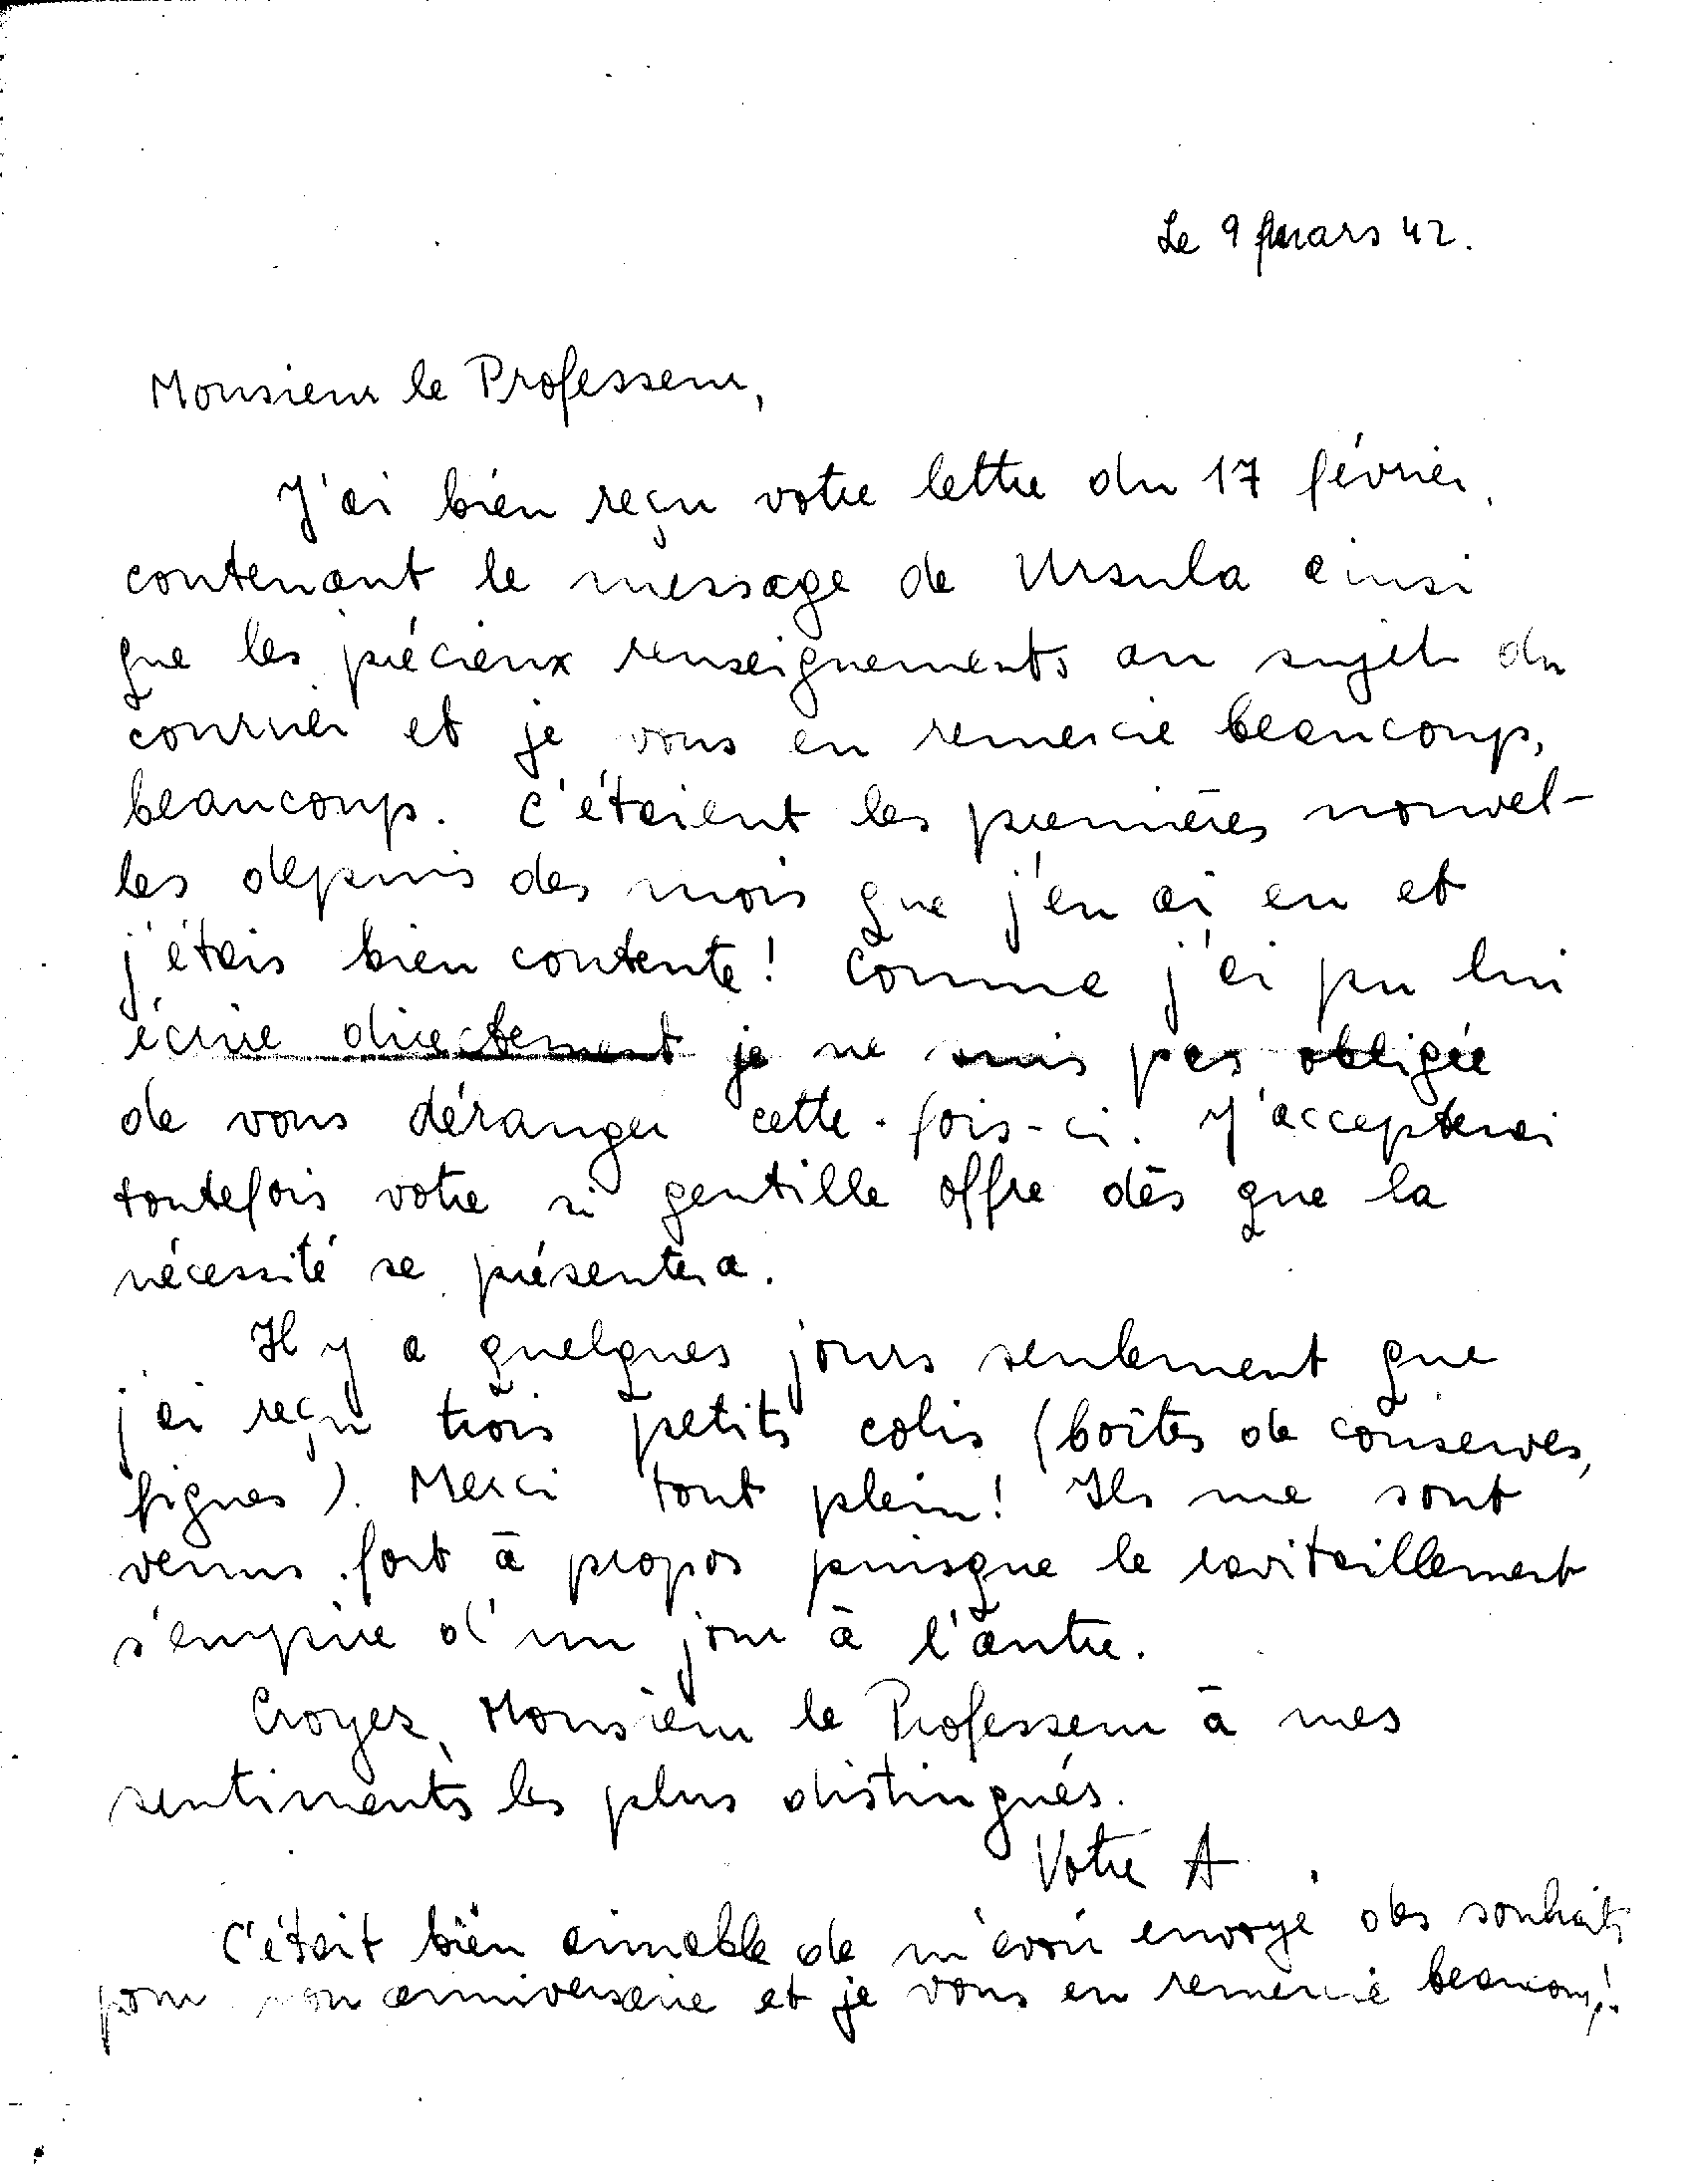 Le 9 mars 42.
Monsieur le Professeur,
J'ai bien reçu votre lettre du 17 février,
contenant le message de Ursula ainsi
que les précieux renseignements au sujet du
courrier et je vous en remercie beaucoup,
beaucoup. C'étaient les premières nouvel-
les depuis des mois que j'en ai eu et
j'étais bien contente! Comme j'ai pu lui
écrire directement je ne suis pas obligée
de vous déranger cette-fois-ci. J'accepterai
toutefois votre si gentille offre dès que la
nécessité se présentera.
Il y a quelques jours seulement que
j'ai reçu trois petits colis (boîtes de conserves,
figues). Merci tout plein! Ils me sont
venus fort à propos puisque le ravitaillement
s'empire d'un jour à l'autre.
Croyez, Monsieur le Professeur à mes
sentiments les plus distingués.
Votre A
C'était bien aimable de m'avoir envoyé des souhaits
pour mon anniversaire et je vous en remercie beaucoup!